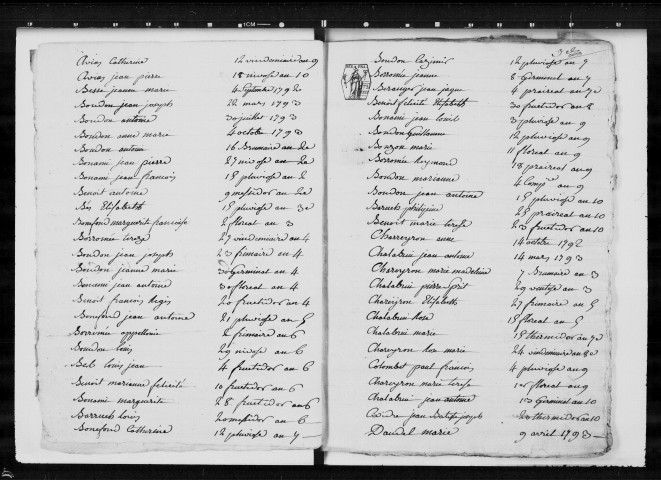 Avias Catherine 12 vindemiaire an 9
Avias jean pierre 18 nivose an 10
Besse jeanne marie 4 septembre 1792
Boudon jean joseph 22 mars 1793
Boudon antoine 30 juillet 1793
Boudon anne marie 4 octobre 1793
Boudon antoine 16 Brumaire an 2e
Bonami jean pierre 27 nivose an 2e
Bonami jean francois 18 pluviose an 2
Benoit antoine 9 messidor an 2e
Bis Elisabeth 15 pluviose an 3e
Bonefond marguerite francoise 2 floreal an 3
Borromée terese 27 vindemiaire an 4
Boudon jean joseph 23 frimaire an 4
Boudon jeanne marie 30 Germinal an 4
Bonami jean antoine 30 floreal an 4
Benoit francois Regis 20 fructidor an 4
Bonefond jean antoine 21 pluviose an 5
Borromée appollonie 2 frimaire an 6
Boudon louis 29 nivose an 6
Bel louis jean 4 fructidor an 6
Benoit marianne felicité 10 fructidor an 6
Bonami marguerite 28 fructidor an 6
Barruel louis 20 messidor an 6
Bonefond Catherine 12 pluviose an 7
Boudon Casimir 12 pluviose an 7
Borromée jeanne 8 Germinal an 7
Beranger jean jaque 4 praireal an 7e
Benoit felicité Elisabeth 30 fructidor an 8
Bonami jean louis 3 pluviose an 9
Boudon Guillaume 12 pluviose an 9
Bouzon marie 11 floreal an 9
Borromée Reymond 18 praireal an 9
Boudon marianne 4 Comp.re an 9
Boudon jean antoine 15 pluviose an 10
Barruel philippine 25 praireal an 10
Benoit marie terese 23 fructidor an 10
Charreyron anne 14 octobre 1792
Chalabrui jean antoine 14 mars 1793
Chareyron marie madeleine 7 Brumaire an 3
Chalabrui pierre Esprit 29 ventose an 3
Chareyron Elisabeth 27 frimaire an 5
Chalabrui Rose 15 floreal an 5
Chalabrui marie 15 thermidor an 7e
Chareyron Rose marie 24 vindemiaire an 8e
Colombet paul francois 4 pluviose an 9
Chareyron marie terese 10 floreal an 9
Chalabrui jean antoine 10 Germinal an 10
jean Batiste joseph 20 thermidor an 10
Daudel marie 9 avril 1793